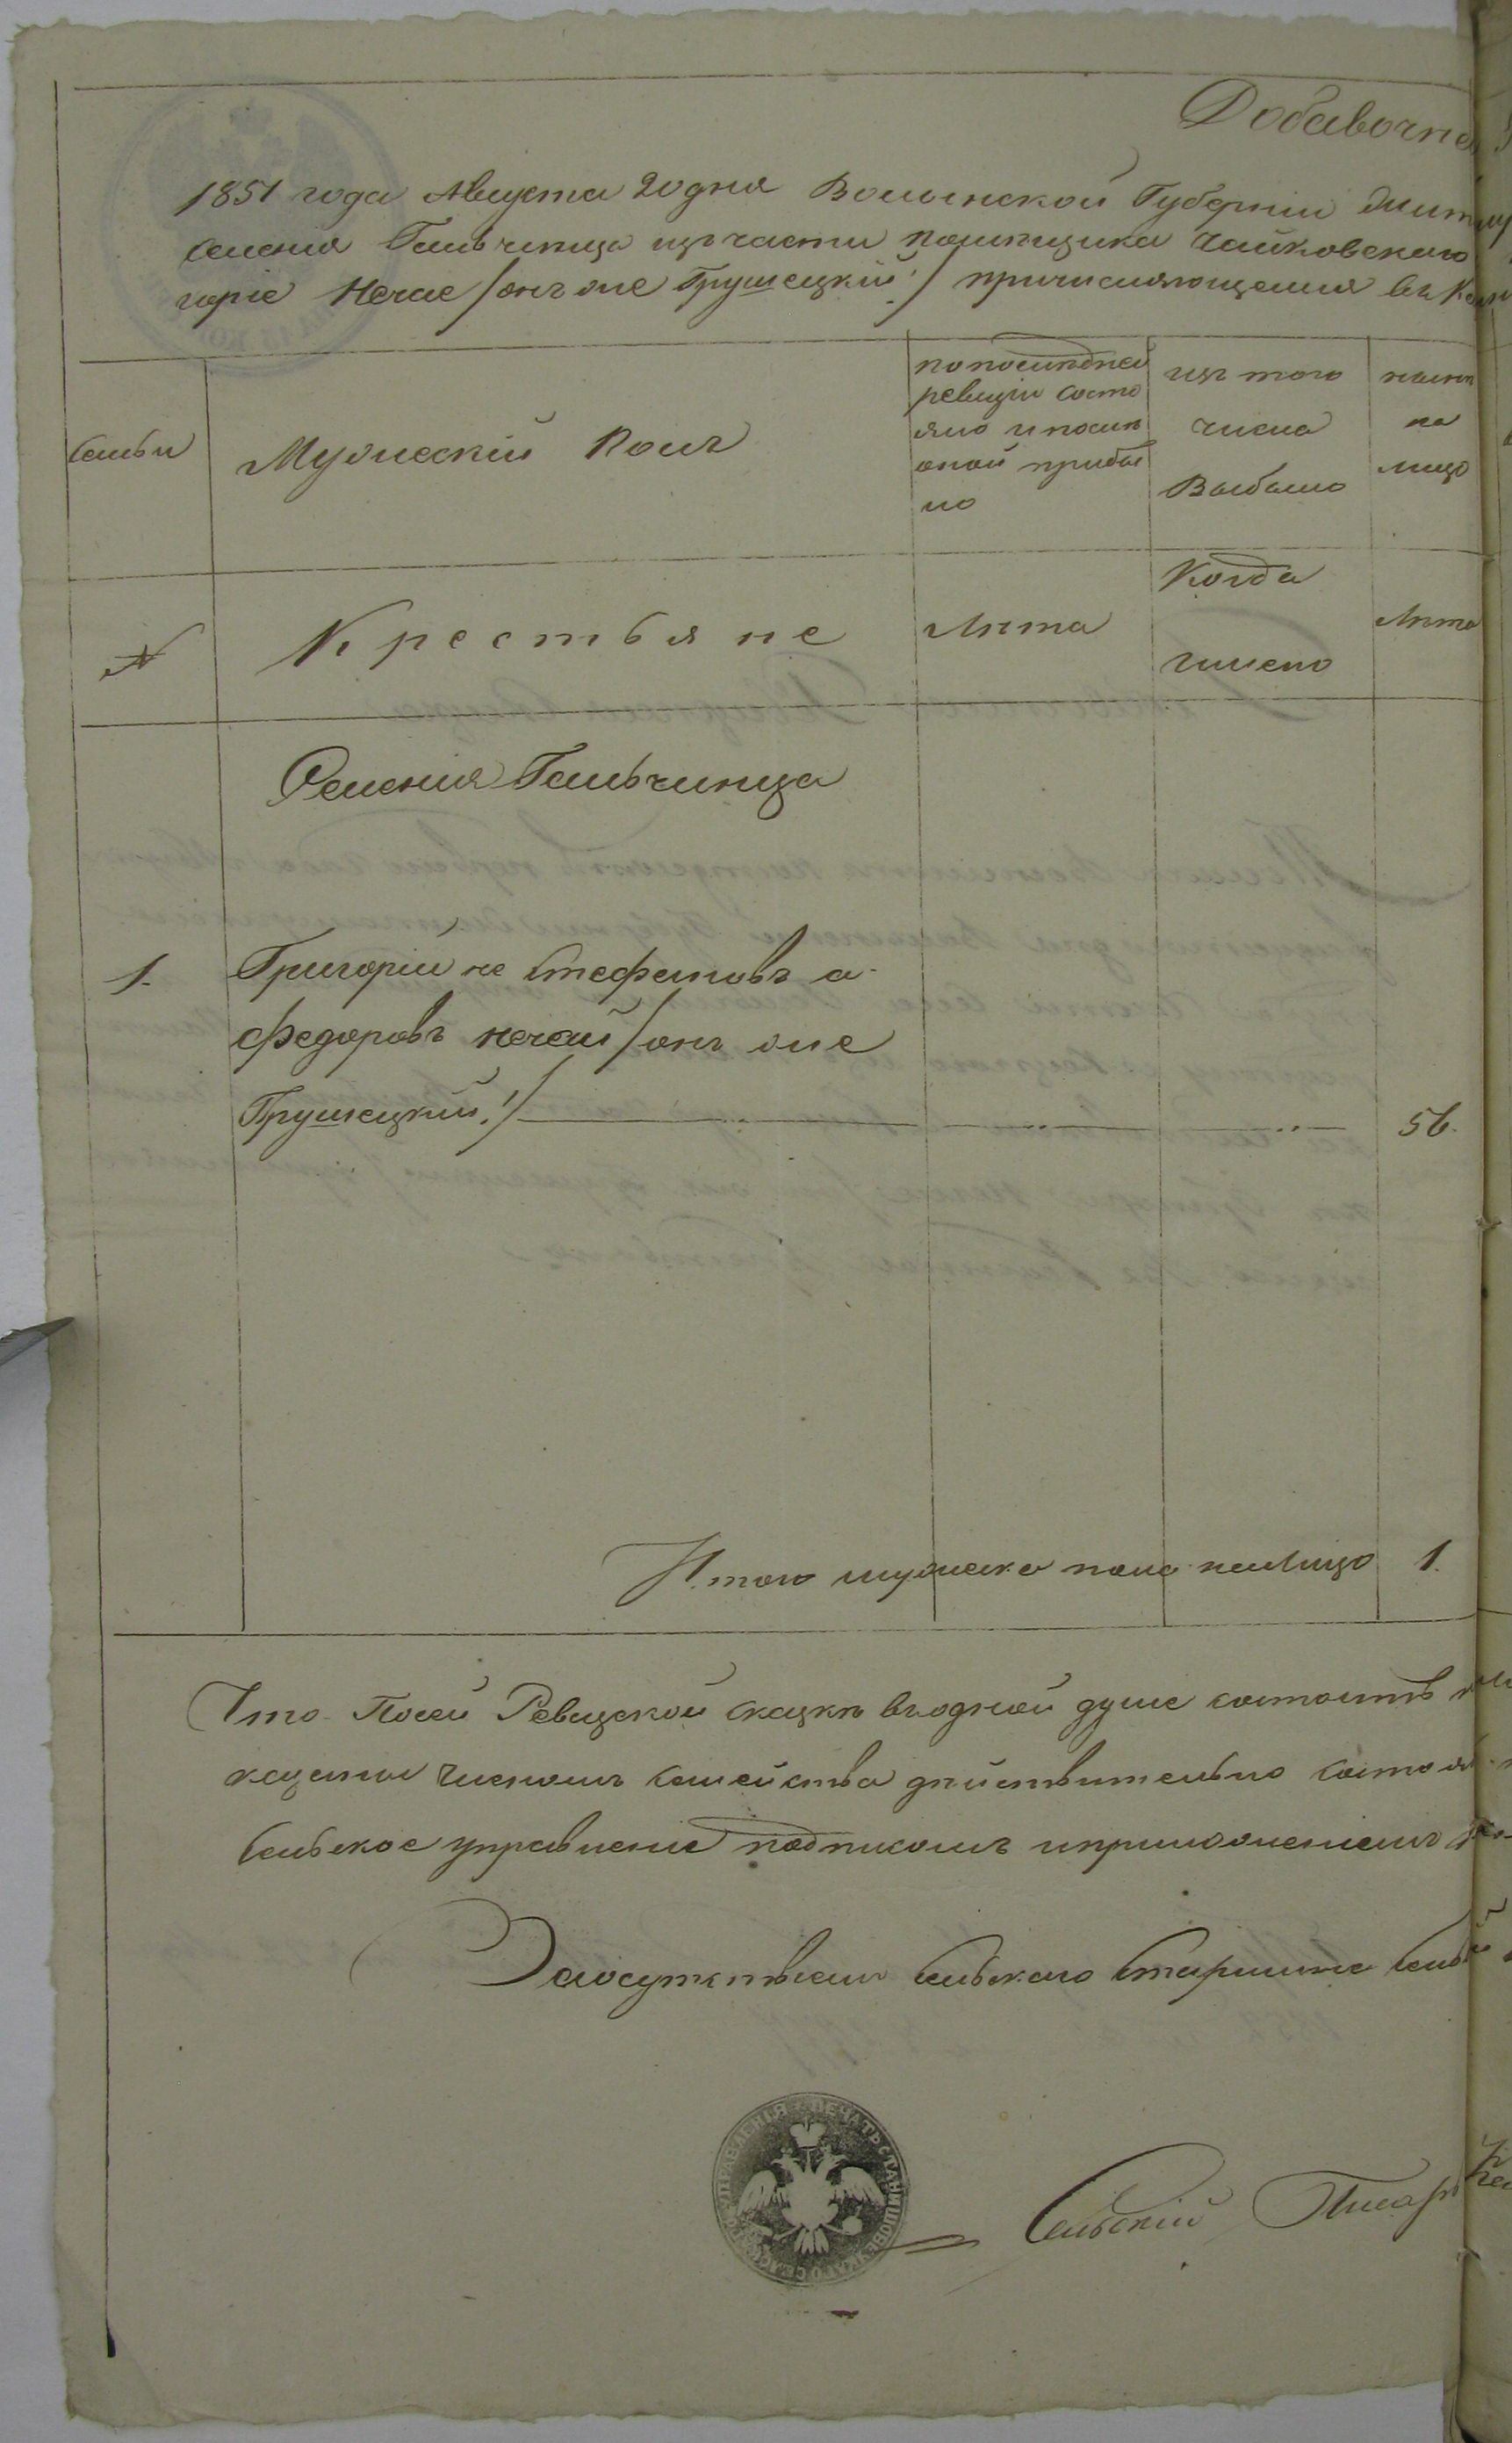 Добавочна
1851 года Августа 20 дня Волынской Губернии Житом
селения Гальчинца изъ части помещика Чайковского
горіе Нечае /онъ же Грушецкий!/ причисляющемся въ
семьи
Мужескій Полъ
по последней
ревизіи состо
яло и после
оной прибы
ло
изъ того
числа
Выбыло
ныне
на
лицо
№
Крестьяне
Лета
Когда
имено
Лета
Селения Гальчинца
1.
Григорій не Стефановъ а
Федоровъ Нечай /онъ же
Грушецкий!/
56.
Итого мужеска пола налицо 1.
Что По сей Ревизской сказке в одной душе состоитъ
казеннои членомъ семейства действительно состоя
сельское управление подписомъ и приложениемъ
За отсутствиемъ сельского старшины
ПЕЧАТЬ СТАНИШОВЕЦКАГО СЕЛЬСКАГО УПРАВЛЕНІЯ
Сельскій Писарь